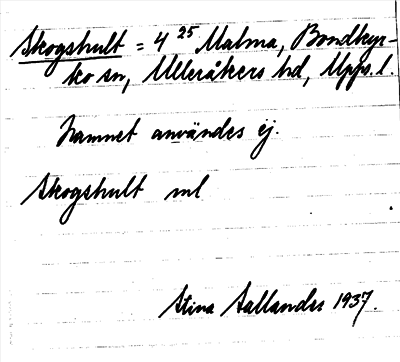 Skogshult = 4²⁵ Malma, Bondkyr-
ko sn, Ulleråkers hd, Upps. l.
Namnet användes ej.
Skogshult ml
Stina Sallander 1937.